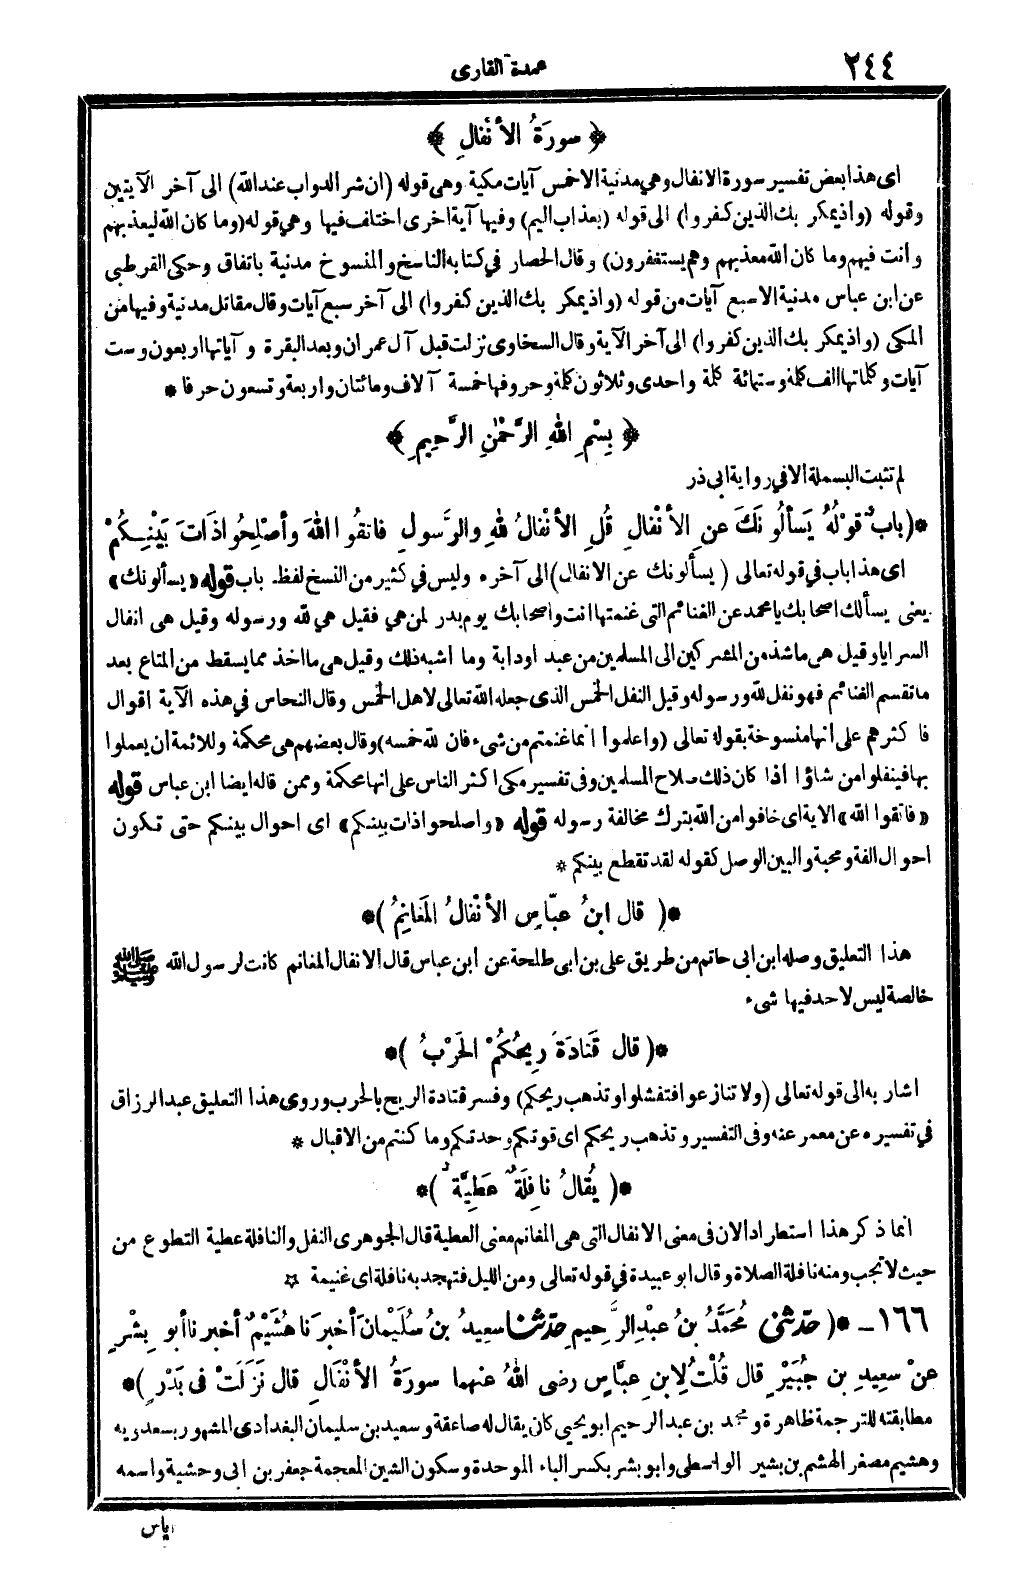 ٢٤٤
عمدة القارى
﴿ سورَةُ الأنْفالِ ﴾
اى هذا بعض تفسير سورة الانفال وهي مدنية الاخمس آيات مكية وهى قوله (ان شر الدواب عند الله) الى آخر الآيتين
وقوله (واذ يمكر بك الذين كفروا) الى قوله (بعذاب اليم) وفيها آية اخرى اختلف فيها وهي قوله (وما كان الله ليعذبهم
وانت فيهم وما كان الله معذبهم وهم يستغفرون) وقال الحصار في كتابه الناسخ والمنسوخ مدنية باتفاق وحكى القرطبى
عن ابن عباس مدنية الاسبع آيات من قوله (واذ يمكر بك الذين كفروا) الى آخر سبع آيات وقال مقاتل مدنية وفيها من
المكى (واذ يمكر بك الذين كفروا) الى آخر الآية وقال السخاوى نزلت قبل آل عمران وبعد البقرة وآياتها اربعون وست
آيات وكلماتها الف كلمة وستمائة كلمة واحدى وثلاثون كلمة وحروفها خمسة آلاف ومائتان واربعة وتسعون حرفا *
﴿ بِسْمِ اللهِ الرَّحْمٰنِ الرَّحِيمِ ﴾
لم تثبت البسملة الا في رواية ابى ذر
*(بابٌ قوْلُهُ يَسألُونَكَ عنِ الأنْفالِ قُلِ الأنْفالُ للهِ والرَّسولِ فاتقُوا اللهَ وأصْلِحُوا ذَاتَ بَيْنِكُمْ
اى هذا باب في قوله تعالى (يسألونك عن الانفال) الى آخره وليس في كثير من النسخ لفظ باب قوله «يسألونك»
يعنى يسألك اصحابك يا محمد عن الغنائم التى غنمتها انت واصحابك يوم بدر لمن هي فقيل هي لله ورسوله وقيل هى انفال
السرايا وقيل هى ما شذ من المشركين الى المسلمين من عبد او دابة وما اشبه ذلك وقيل هى ما اخذ مما يسقط من المتاع بعد
ما تقسم الغنائم فهو نفل لله ورسوله وقيل النفل الخمس الذى جعله الله تعالى لاهل الخمس وقال النحاس في هذه الآية اقوال
فاكثرهم على انها منسوخة بقوله تعالى (واعلموا انما غنمتم من شىء فان لله خمسه) وقال بعضهم هى محكمة وللائمة ان يعملوا
بها فينفلوا من شاؤا اذا كان ذلك صلاح المسلمين وفى تفسير مكى اكثر الناس على انها محكمة وممن قاله ايضا ابن عباس قوله
«فاتقوا الله» الاية اى خافوا من الله بترك مخالفة رسوله قوله «واصلحوا ذات بينكم» اى احوال بينكم حتى تكون
احوال الفة ومحبة والبين الوصل كقوله لقد تقطع بينكم *
*( قال ابنُ عبّاسٍ الأنْفالُ المَغانِمُ )*
هذا التعليق وصله ابن ابى حاتم من طريق على بن ابى طلحة عن ابن عباس قال الانفال المغانم كانت لرسول الله ﷺ
خالصة ليس لاحد فيها شىء
*( قال قَتادَةَ رِيحُكُمْ الحَرْبُ )*
اشار به الى قوله تعالى (ولا تنازعوا فتفشلوا وتذهب ريحكم) وفسر قتادة الريح بالحرب وروى هذا التعليق عبد الرزاق
في تفسيره عن معمر عنه وفى التفسير وتذهب ريحكم اى قوتكم وحدتكم وما كنتم من الاقبال *
*( يُقالُ نافِلَةٌ عَطِيَّةٌ )*
انما ذكر هذا استطرادا لان فى معنى الانفال التى هى المغانم معنى العطية قال الجوهرى النفل والنافلة عطية التطوع من
حيث لا تجب ومنه نافلة الصلاة وقال ابو عبيدة في قوله تعالى ومن الليل فتهجد به نافلة اى غنيمة ☆
١٦٦ـ *( حدّثنى مُحَمَّدُ بنُ عبْدِ الرَّحِيمِ حدّثنا سعِيدُ بنُ سُلَيْمانَ أخبرَنا هُشَيْمٌ أخبرنا أبو بِشْرٍ
عنْ سعِيدِ بنِ جُبَيْرٍ قال قُلْتُ لِابنِ عبَّاسٍ رضى اللهُ عنهما سورَةُ الأنْفالِ قال نَزَلَتْ فى بَدْرٍ )*
مطابقته للترجمة ظاهرة ومحمد بن عبد الرحيم ابو يحيى كان يقال له صاعقة وسعيد بن سليمان البغدادى المشهور بسعدويه
وهشيم مصغر الهشم بن بشير الواسطى وابو بشر بكسر الباء الموحدة وسكون الشين المعجمة جعفر بن ابى وحشية واسمه
اياس